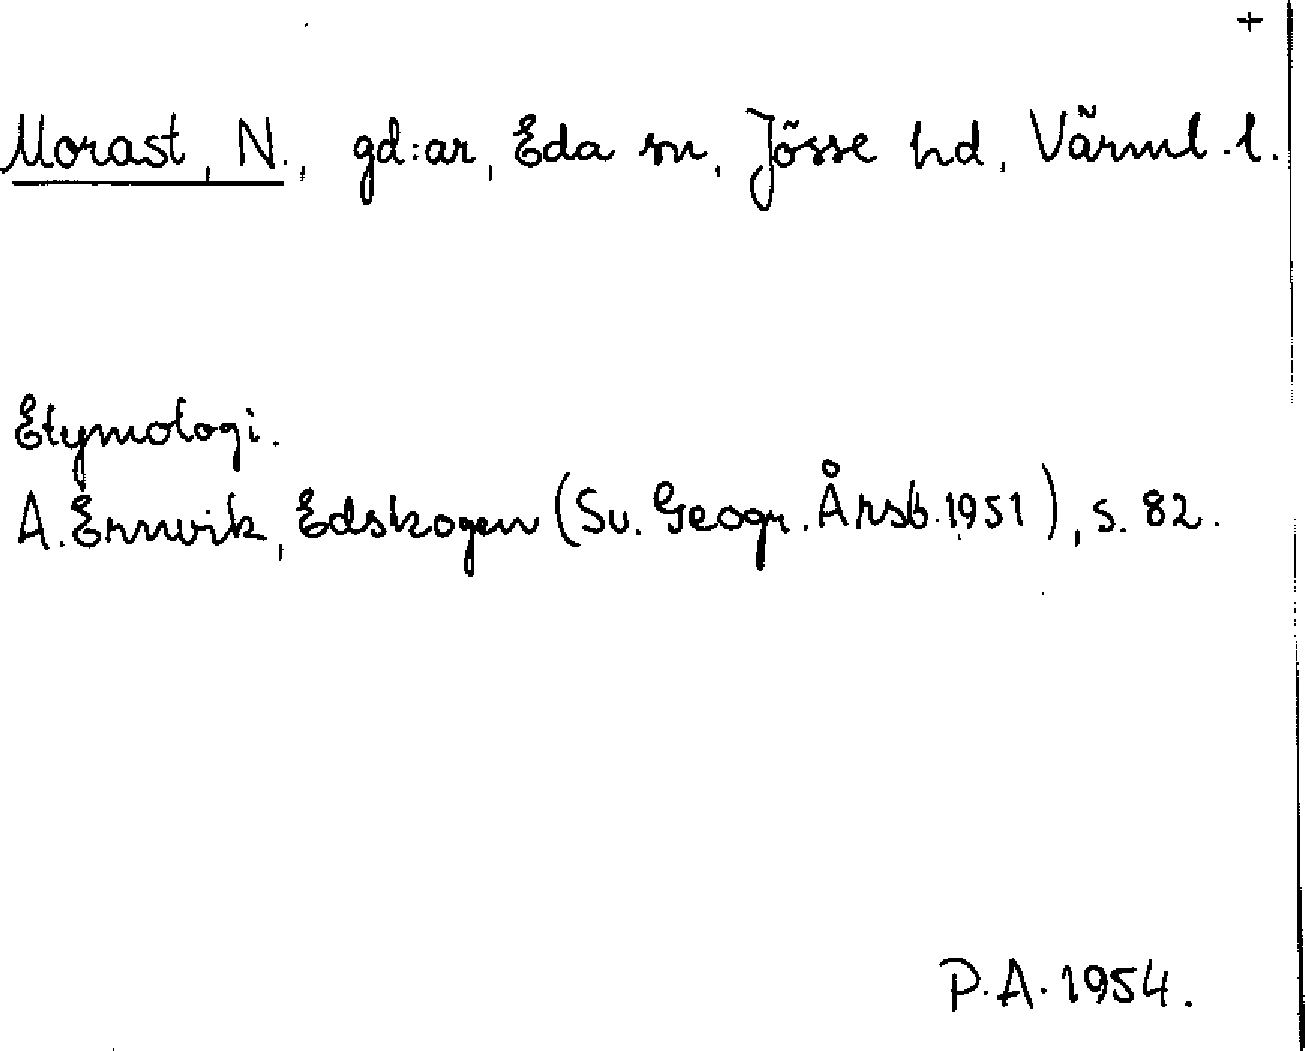 +
Morast, N., gd:ar, Eda sn, Jösse hd, Värml. l.
Etymologi.
A. Ernvik, Edskogen (Sv. Geogr. Årsb. 1951), s. 82.
P.A. 1954.